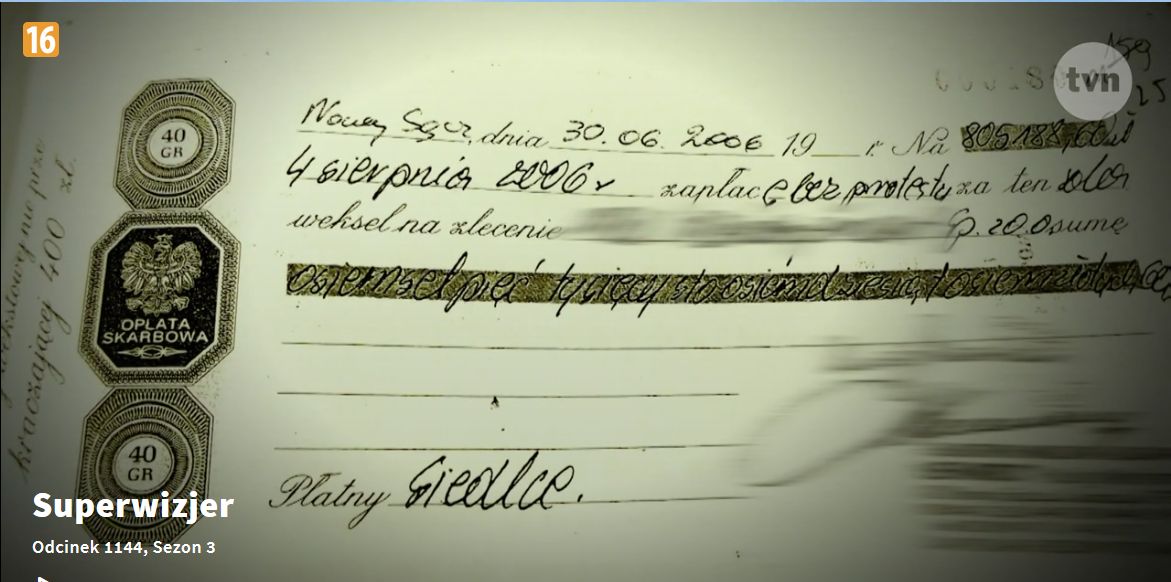 16
tvn
40
GR
OPŁATA
SKARBOWA
40
GR
kraczającej 400 zł.
Nowy Sącz, dnia 30.06.2006 19 r. Na 805188,60 zł
4 sierpnia 2006 r zapłacę bez protestu za ten sola
weksel na zlecenie Sp. z o.o sumę
Osiemset pięć tysięcy sto osiemdziesiąt osiem złotych
Płatny Siedlce.
Superwizjer
Odcinek 1144, Sezon 3